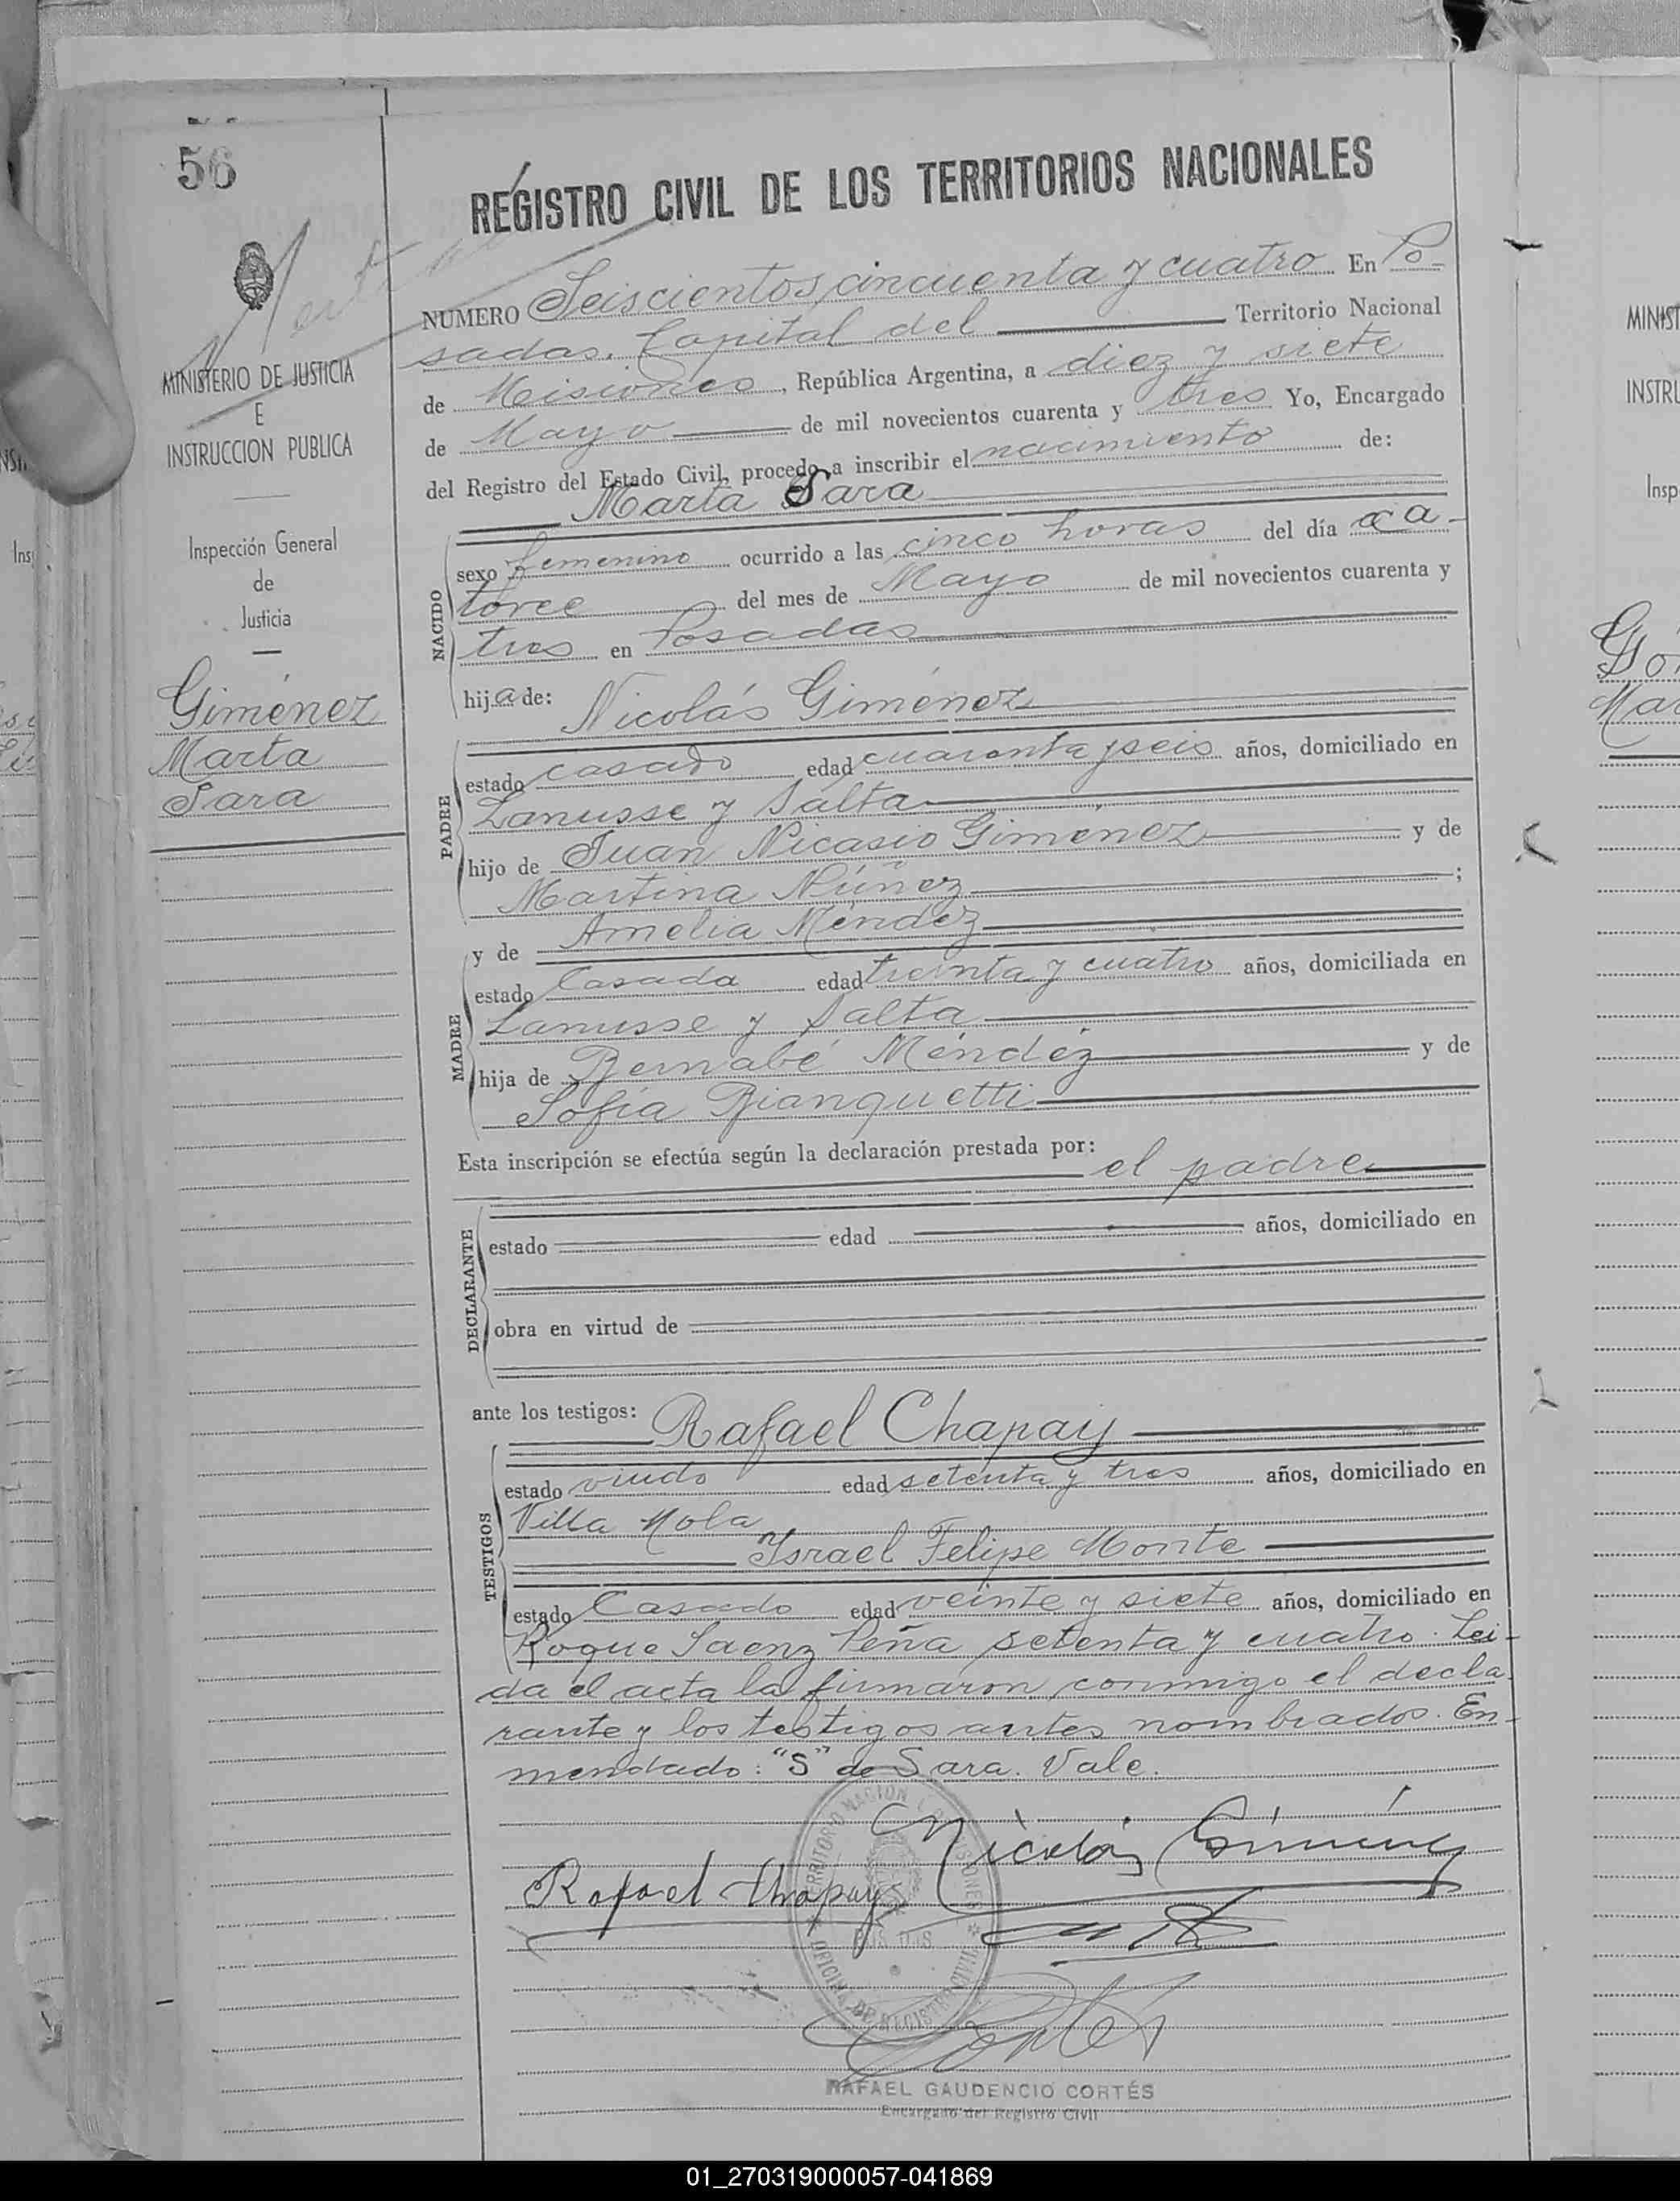 56
REGISTRO CIVIL DE LOS TERRITORIOS NACIONALES
MINISTERIO DE JUSTICIA
E
INSTRUCCION PUBLICA
Inspección General
de
Justicia
Giménez
Marta
Sara
NUMERO Seiscientos cincuenta y cuatro En Po-
sadas, Capital del Territorio Nacional
de Misiones, República Argentina, a diez y siete
de Mayo de mil novecientos cuarenta y tres Yo, Encargado
del Registro del Estado Civil, procedo a inscribir el nacimiento de:
Marta Sara
NACIDO
sexo femenino ocurrido a las cinco horas del día ca-
torce del mes de Mayo de mil novecientos cuarenta y
tres en Posadas
hija de: Nicolás Giménez
PADRE
estado casado edad cuarenta y seis años, domiciliado en
Lanusse y Salta
hijo de Juan Nicasio Giménez y de
Martina Núñez ;
y de Amelia Méndez
MADRE
estado Casada edad treinta y cuatro años, domiciliada en
Lanusse y Salta
hija de Bernabé Méndez y de
Sofía Bianquetti
Esta inscripción se efectúa según la declaración prestada por: el padre
DECLARANTE
estado edad años, domiciliado en
obra en virtud de
ante los testigos: Rafael Chapay
TESTIGOS
estado viudo edad setenta y tres años, domiciliado en
Villa Mola
Israel Felipe Monte
estado Casado edad veinte y siete años, domiciliado en
Roque Saenz Peña setenta y cuatro. Lei-
da el acta la firmaron conmigo el decla-
rante y los testigos antes nombrados. En-
mendado: "S" de Sara. Vale.
Nicolás Giménez
Rafael Chapay
RAFAEL GAUDENCIO CORTÉS
Encargado del Registro Civil
01_270319000057-041869